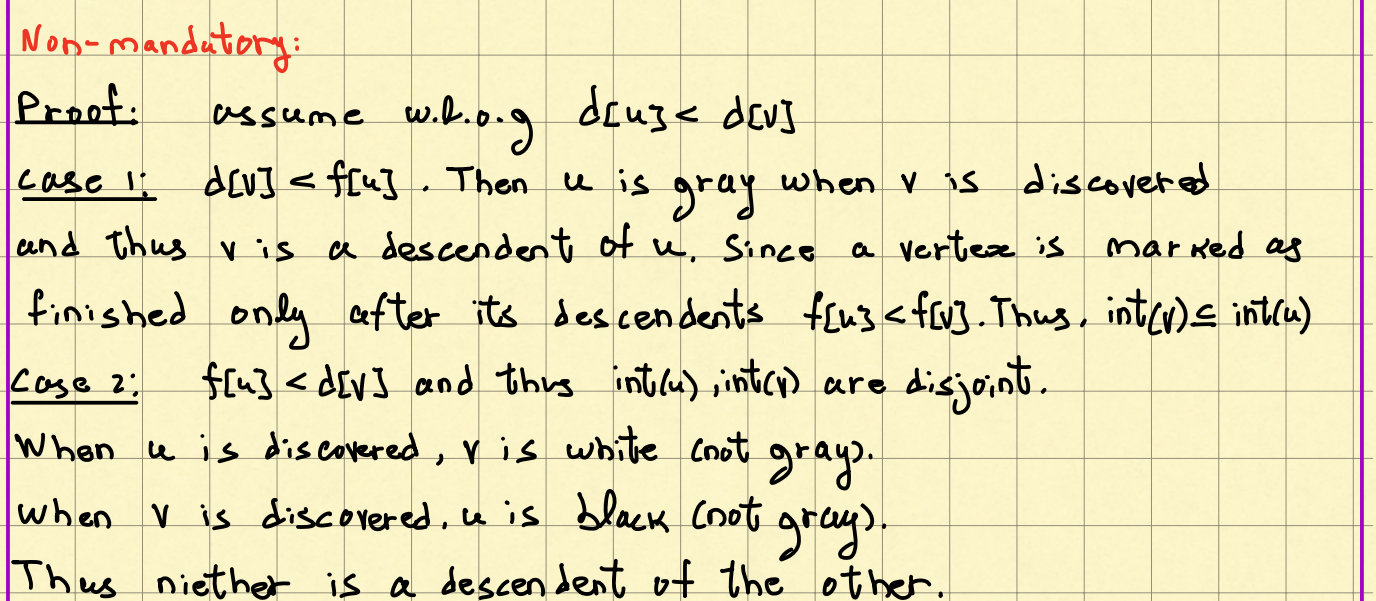 Non-mandatory:
Proof: assume w.l.o.g d[u] < d[v]
case 1: d[v] < f[u] . Then u is gray when v is discovered
and thus v is a descendent of u. Since a vertex is marked as
finished only after its descendents f[u] < f[v]. Thus, int(v) ⊆ int(u)
Case 2: f[u] < d[v] and thus int(u), int(v) are disjoint.
When u is discovered, v is white (not gray).
when v is discovered, u is black (not gray).
Thus niether is a descendent of the other.